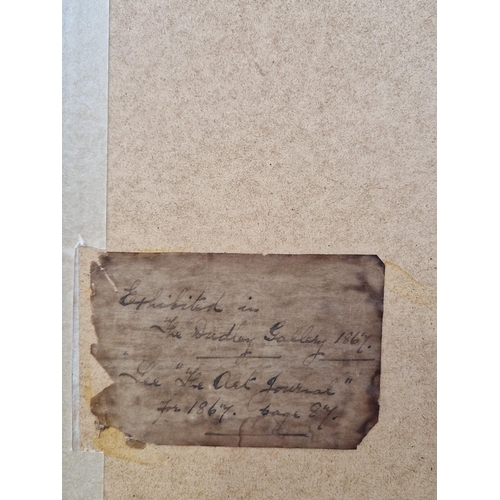 Exhibited in
The Dudley Gallery 1867.
"See "The Art Journal"
for 1867. page 87.